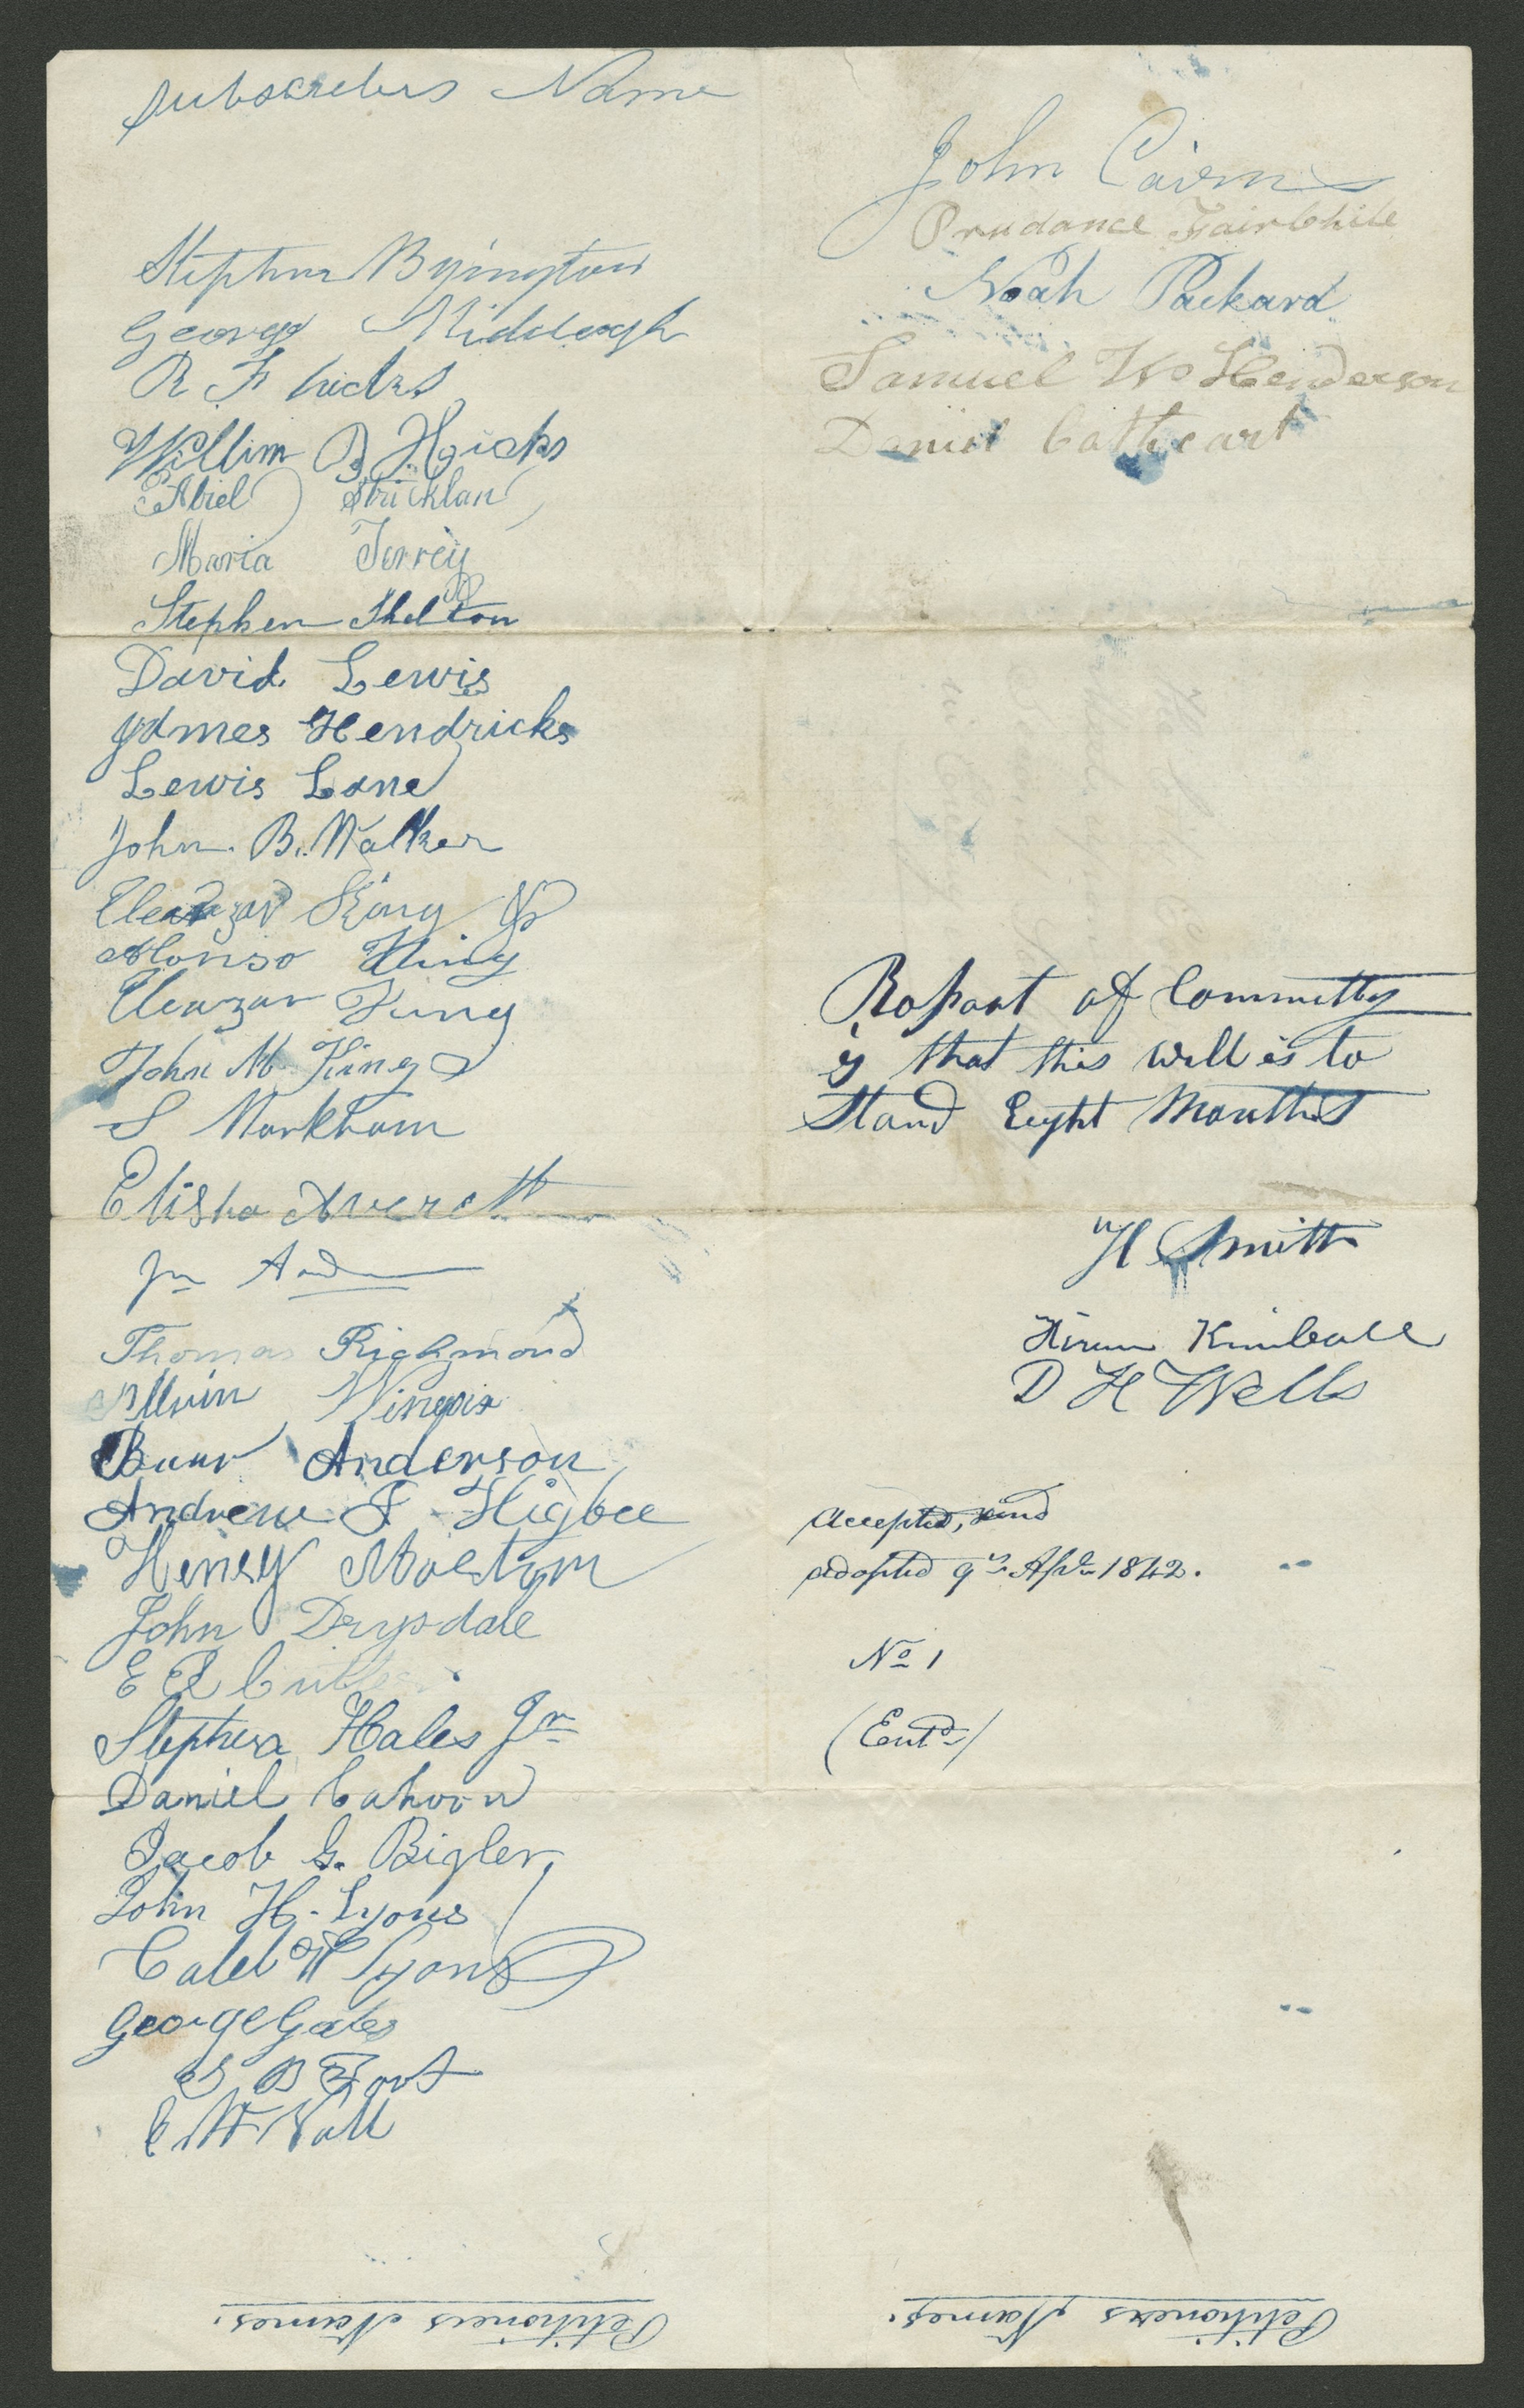 subscrebers Name
Stephen Byington
George Middleagh
R F hicks
Willim B Hicks
Abiel Stricklan
Maria Torrey
Stephen Shelton
David Lewis
James Hendricks
Lewis Lane
John B. Walker
Eleazar King Jr
Alonso King
Eleazar King
John M King
S Markham
Elisha Averett
Jn
Thomas Richmond
Alvin Winegar
Buur Anderson
Andrew F Higbee
Henry Moestym
John Drysdale
E
Stephen Hales Jr
Daniel Cahoon
Jacob G. Bigler
John H. Lyons
Caleb W Lyons
George Gates
S B Foot
E W Vall
Petitioners Names.
John Cairns
Prudance Fairchile
Noah Packard
Samuel W Henderson
Daniel Cathcart
Roport of Committy
is that this will is to
Stand Eight Months
H Smith
Hiram Kimball
D H Wells
Accepted, and
adopted 9th Apl. 1842.
No 1
(Entd)
Petitioners Names.